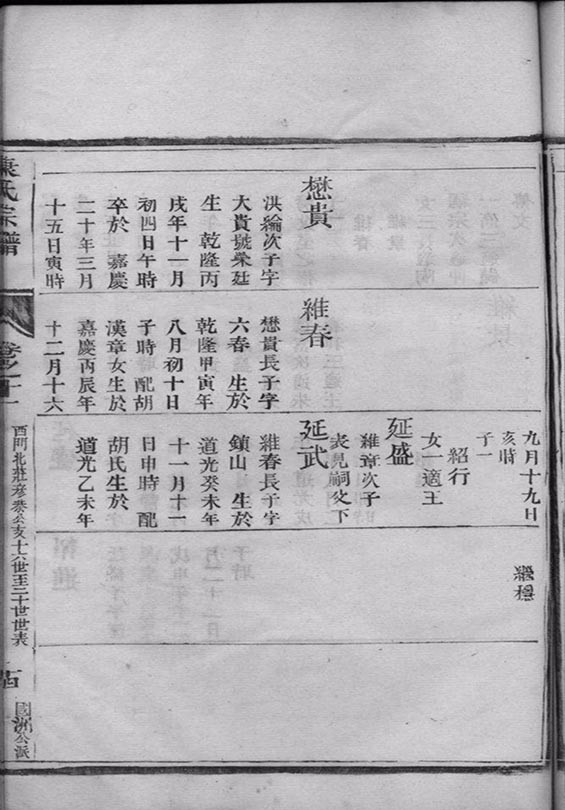 懋貴
洪綸次子字
大貴號榮廷
生 乾隆丙
戌年十一月
初四日午時
卒於 嘉慶
二十年三月
十五日寅時
維春
懋貴長子字
六春 生於
乾隆甲寅年
八月初十日
子時配胡
漢章女生於
嘉慶丙辰年
十二月十六
九月十九日
亥時
子一
紹行
女一適王
延盛
維章次子
表見嗣父下
延武
維春長子字
鎮山 生於
道光癸未年
十一月十一
日申時 配
胡氏生於
道光乙未年
氏宗譜
卷之十一
世至二十世世表
國洲公派